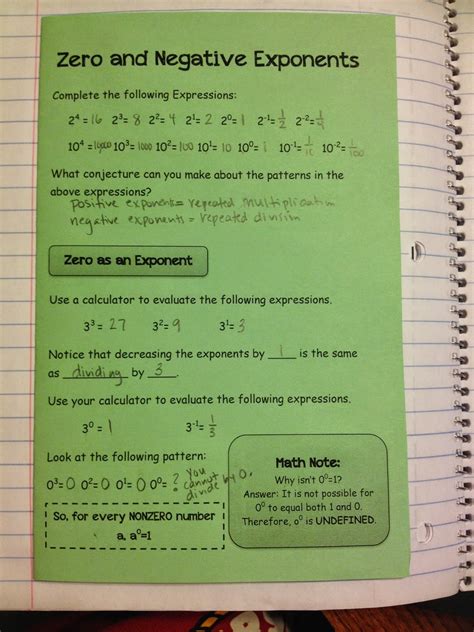 Zero and Negative Exponents
Complete the following Expressions:
2⁴ = 16 2³= 8 2²= 4 2¹= 2 2⁰= 1 2⁻¹= 1/2 2⁻²= 1/4
10⁴ =10,000 10³= 1000 10²= 100 10¹= 10 10⁰= 1 10⁻¹= 1/10 10⁻²= 1/100
What conjecture can you make about the patterns in the
above expressions?
positive exponents= repeated multiplication
negative exponents = repeated division
Zero as an Exponent
Use a calculator to evaluate the following expressions.
3³ = 27 3²= 9 3¹= 3
Notice that decreasing the exponents by 1 is the same
as dividing by 3.
Use your calculator to evaluate the following expressions.
3⁰ = 1 3⁻¹= 1/3
Look at the following pattern:
0³= 0 0²= 0 0¹= 0 0⁰= ? You cannot divide by 0.
So, for every NONZERO number
a, a⁰=1
Math Note:
Why isn't 0⁰=1?
Answer: It is not possible for
0⁰ to equal both 1 and 0.
Therefore, 0⁰ is UNDEFINED.